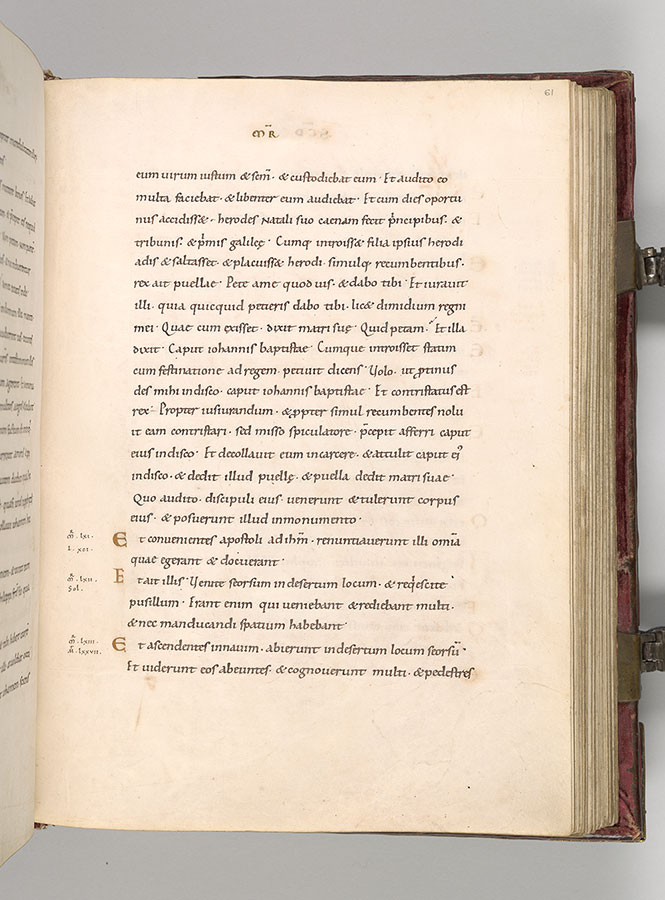 61
MR̄
eum uirum iustum & sc̄m̄ · & custodiebat eum · Et audito eo
multa faciebat · & libenter eum audiebat · Et cum dies oportu
nus accidiss& · herodes Natali suo caenam fecit p̄ncipibus · &
tribunis · & p̄mis galileę · Cumq; introiss& filia ipsius herodi
adis & saltass& · & placuiss& herodi · simulq; recumbentibus ·
rex ait puellae · Pete ame quod uis · & dabo tibi · Et iurauit
illi · quia quicquid petieris dabo tibi · lic& dimidium regni
mei · Quae cum exisset · dixit matri suę · Quid petam · Et illa
dixit · Caput iohannis baptistae · Cumque introisset statim
cum festinatione ad regem · petiuit dicens · Uolo · ut p̄tinus
des mihi indisco · caput iohannis baptistae · Et contristatus est
rex · Propter iusiurandum · & ꝓpter simul recumbentes nolu
it eam contristari · sed misso spiculatore · p̄cepit afferri caput
eius indisco · Et decollauit eum incarcere · & attulit caput ei;
indisco · & dedit illud puellę · & puella dedit matri suae ·
Quo audito · discipuli eius · uenerunt & tulerunt corpus
eius · & posuerunt illud inmonumento ·
m̄ · lxi · Et conuenientes apostoli ad ih̄m · renuntiauerunt illi omīa
quae egerant & docuerant ·
m̄ · lxii · Et ait illis · Uenite seorsum in desertum locum · & req̇escite
Sol · pusillum · Erant enim qui ueniebant & rediebant multi ·
& nec manducandi spatium habebant ·
m̄ · lxiii · Et ascendentes innauim · abierunt indesertum locum seorsū ·
m̄ · lxxvii · Et uiderunt eos abeuntes · & cognouerunt multi · & pedestres